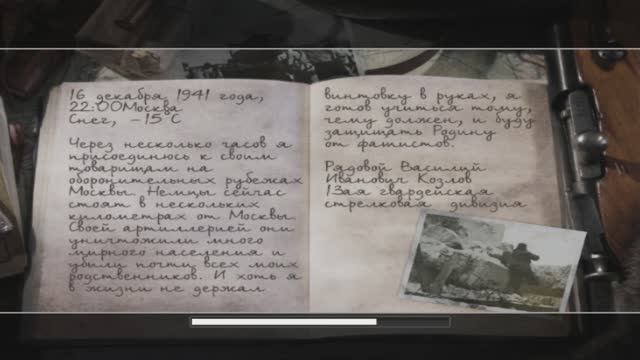 16 декабря, 1941 года,
22:00Москва
Снег, -15 С
Через несколько часов я
присоединюсь к своим
товарищам на
оборонительных рубежах
Москвы. Немцы сейчас
стоят в нескольких
километрах от Москвы.
Своей артиллерией они
уничтожили много
мирного населения и
убили почти всех моих
родственников. И хоть я
в жизни не держал
винтовку в руках, я
готов учиться тому,
чему должен, и буду
защищать Родину
от фашистов.
Рядовой Василий
Иванович Козлов
13ая гвардейская
стрелковая дивизия